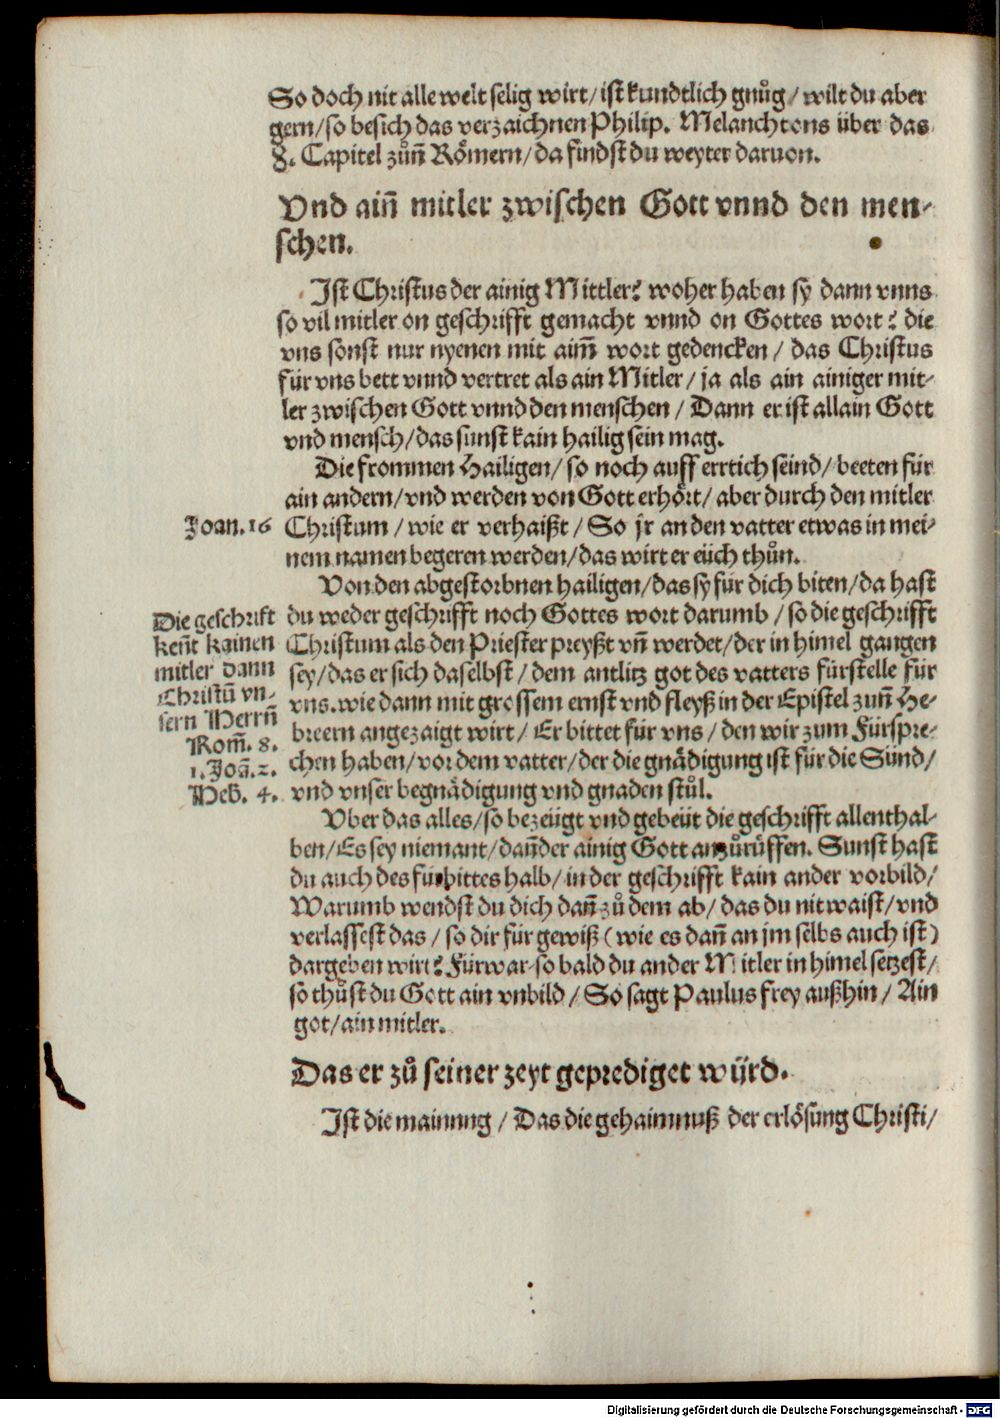 So doch nit alle welt selig wirt/ ist kundtlich gnůg/ wilt du aber
gern/ so besich das verzaichnen Philip. Melanchtons über das
8. Capitel zůn̄ Römern/ da findst du weyter daruon.
Vnd ain̄ mitler zwischen Gott vnnd den men-
schen.
Ist Christus der ainig Mittler? woher haben sy dann vnns
so vil mitler on geschrifft gemacht vnnd on Gottes wort? die
vns sonst nur nyenen mit aim̄ wort gedencken/ das Christus
für vns bett vnnd vertret als ain Mitler/ ja als ain ainiger mit-
ler zwischen Gott vnnd den menschen/ Dann er ist allain Gott
vnd mensch/ das sunst kain hailig sein mag.
Die frommen Hailigen/ so noch auff errtich seind/ beeten für
ain andern/ vnd werden von Gott erhört/ aber durch den mitler
Joan. 16
Christum/ wie er verhaißt/ So jr an den vatter etwas in mei-
nem namen begeren werden/ das wirt er eüch thůn.
Von den abgestorbnen hailigen/ das sy für dich biten/ da hast
Die geschrift
ken̄t kainen
mitler dann
Christū vn-
sern Herrn̄
Rom̄. 8.
1. Joā. 2.
Heb. 4.
du weder geschrifft noch Gottes wort darumb/ so die geschrifft
Christum als den Priester preyßt vn̄ werdet/ der in himel gangen
sey/ das er sich daselbst/ dem antlitz got des vatters fürstelle für
vns. wie dann mit grossem ernst vnd fleyß in der Epistel zun̄ He-
breern angezaigt wirt/ Er bittet für vns/ den wir zum Fürspre-
chen haben/ vor dem vatter/ der die gnädigung ist für die Sünd/
vnd vnser begnädigung vnd gnaden stůl.
Vber das alles/ so bezeügt vnd gebeüt die geschrifft allenthal-
ben/ Es sey niemant/ dan̄ der ainig Gott anzůrüffen. Sunst hast
du auch des fürbittes halb/ in der geschrifft kain ander vorbild/
Warumb wendst du dich dan̄ zů dem ab/ das du nit waist/ vnd
verlassest das/ so dir für gewiß (wie es dan̄ an jm selbs auch ist)
dargeben wirt? Fürwar so bald du ander Mitler in himel setzest/
so thůst du Gott ain vnbild/ So sagt Paulus frey außhin/ Ain
got/ ain mitler.
Das er zů seiner zeyt geprediget würd.
Ist die mainung/ Das die gehaimnuß der erlösung Christi/
Digitalisierung gefördert durch die Deutsche Forschungsgemeinschaft - DFG